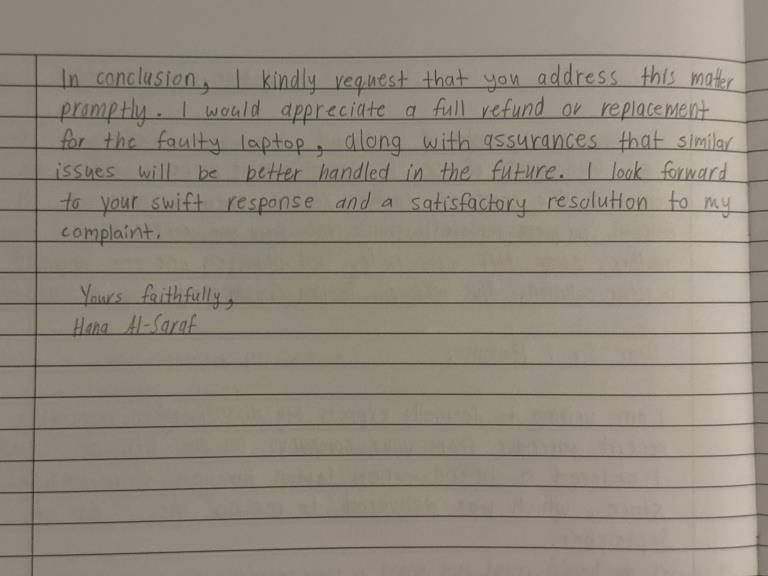 In conclusion, I kindly request that you address this matter
promptly. I would appreciate a full refund or replacement
for the faulty laptop, along with assurances that similar
issues will be better handled in the future. I look forward
to your swift response and a satisfactory resolution to my
complaint.
Yours faithfully,
Hana Al-Saraf